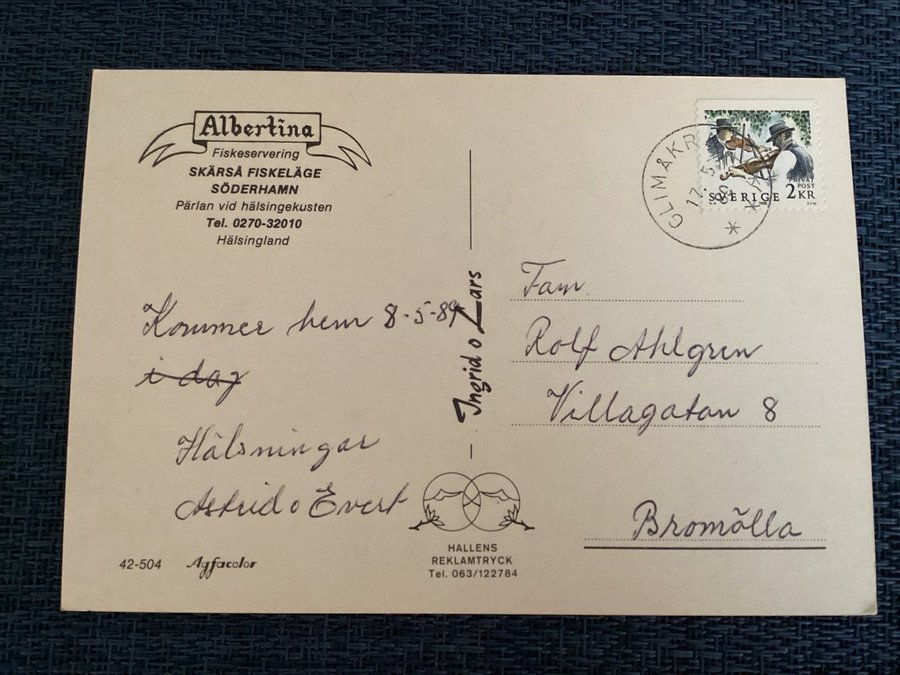 Albertina
Fiskeservering
SKÄRSÅ FISKELÄGE
SÖDERHAMN
Pärlan vid hälsingekusten
Tel. 0270-32010
Hälsingland
Kommer hem 8-5-89
i dag
Hälsningar
Astrid o Evert
42-504 Agfacolor
Ingrid o Lars
HALLENS
REKLAMTRYCK
Tel. 063/122784
GLIMÅKR
17. 5
SVERIGE 2 KR
PRIVAT
POST
Fam
Rolf Ahlgren
Villagatan 8
Bromölla